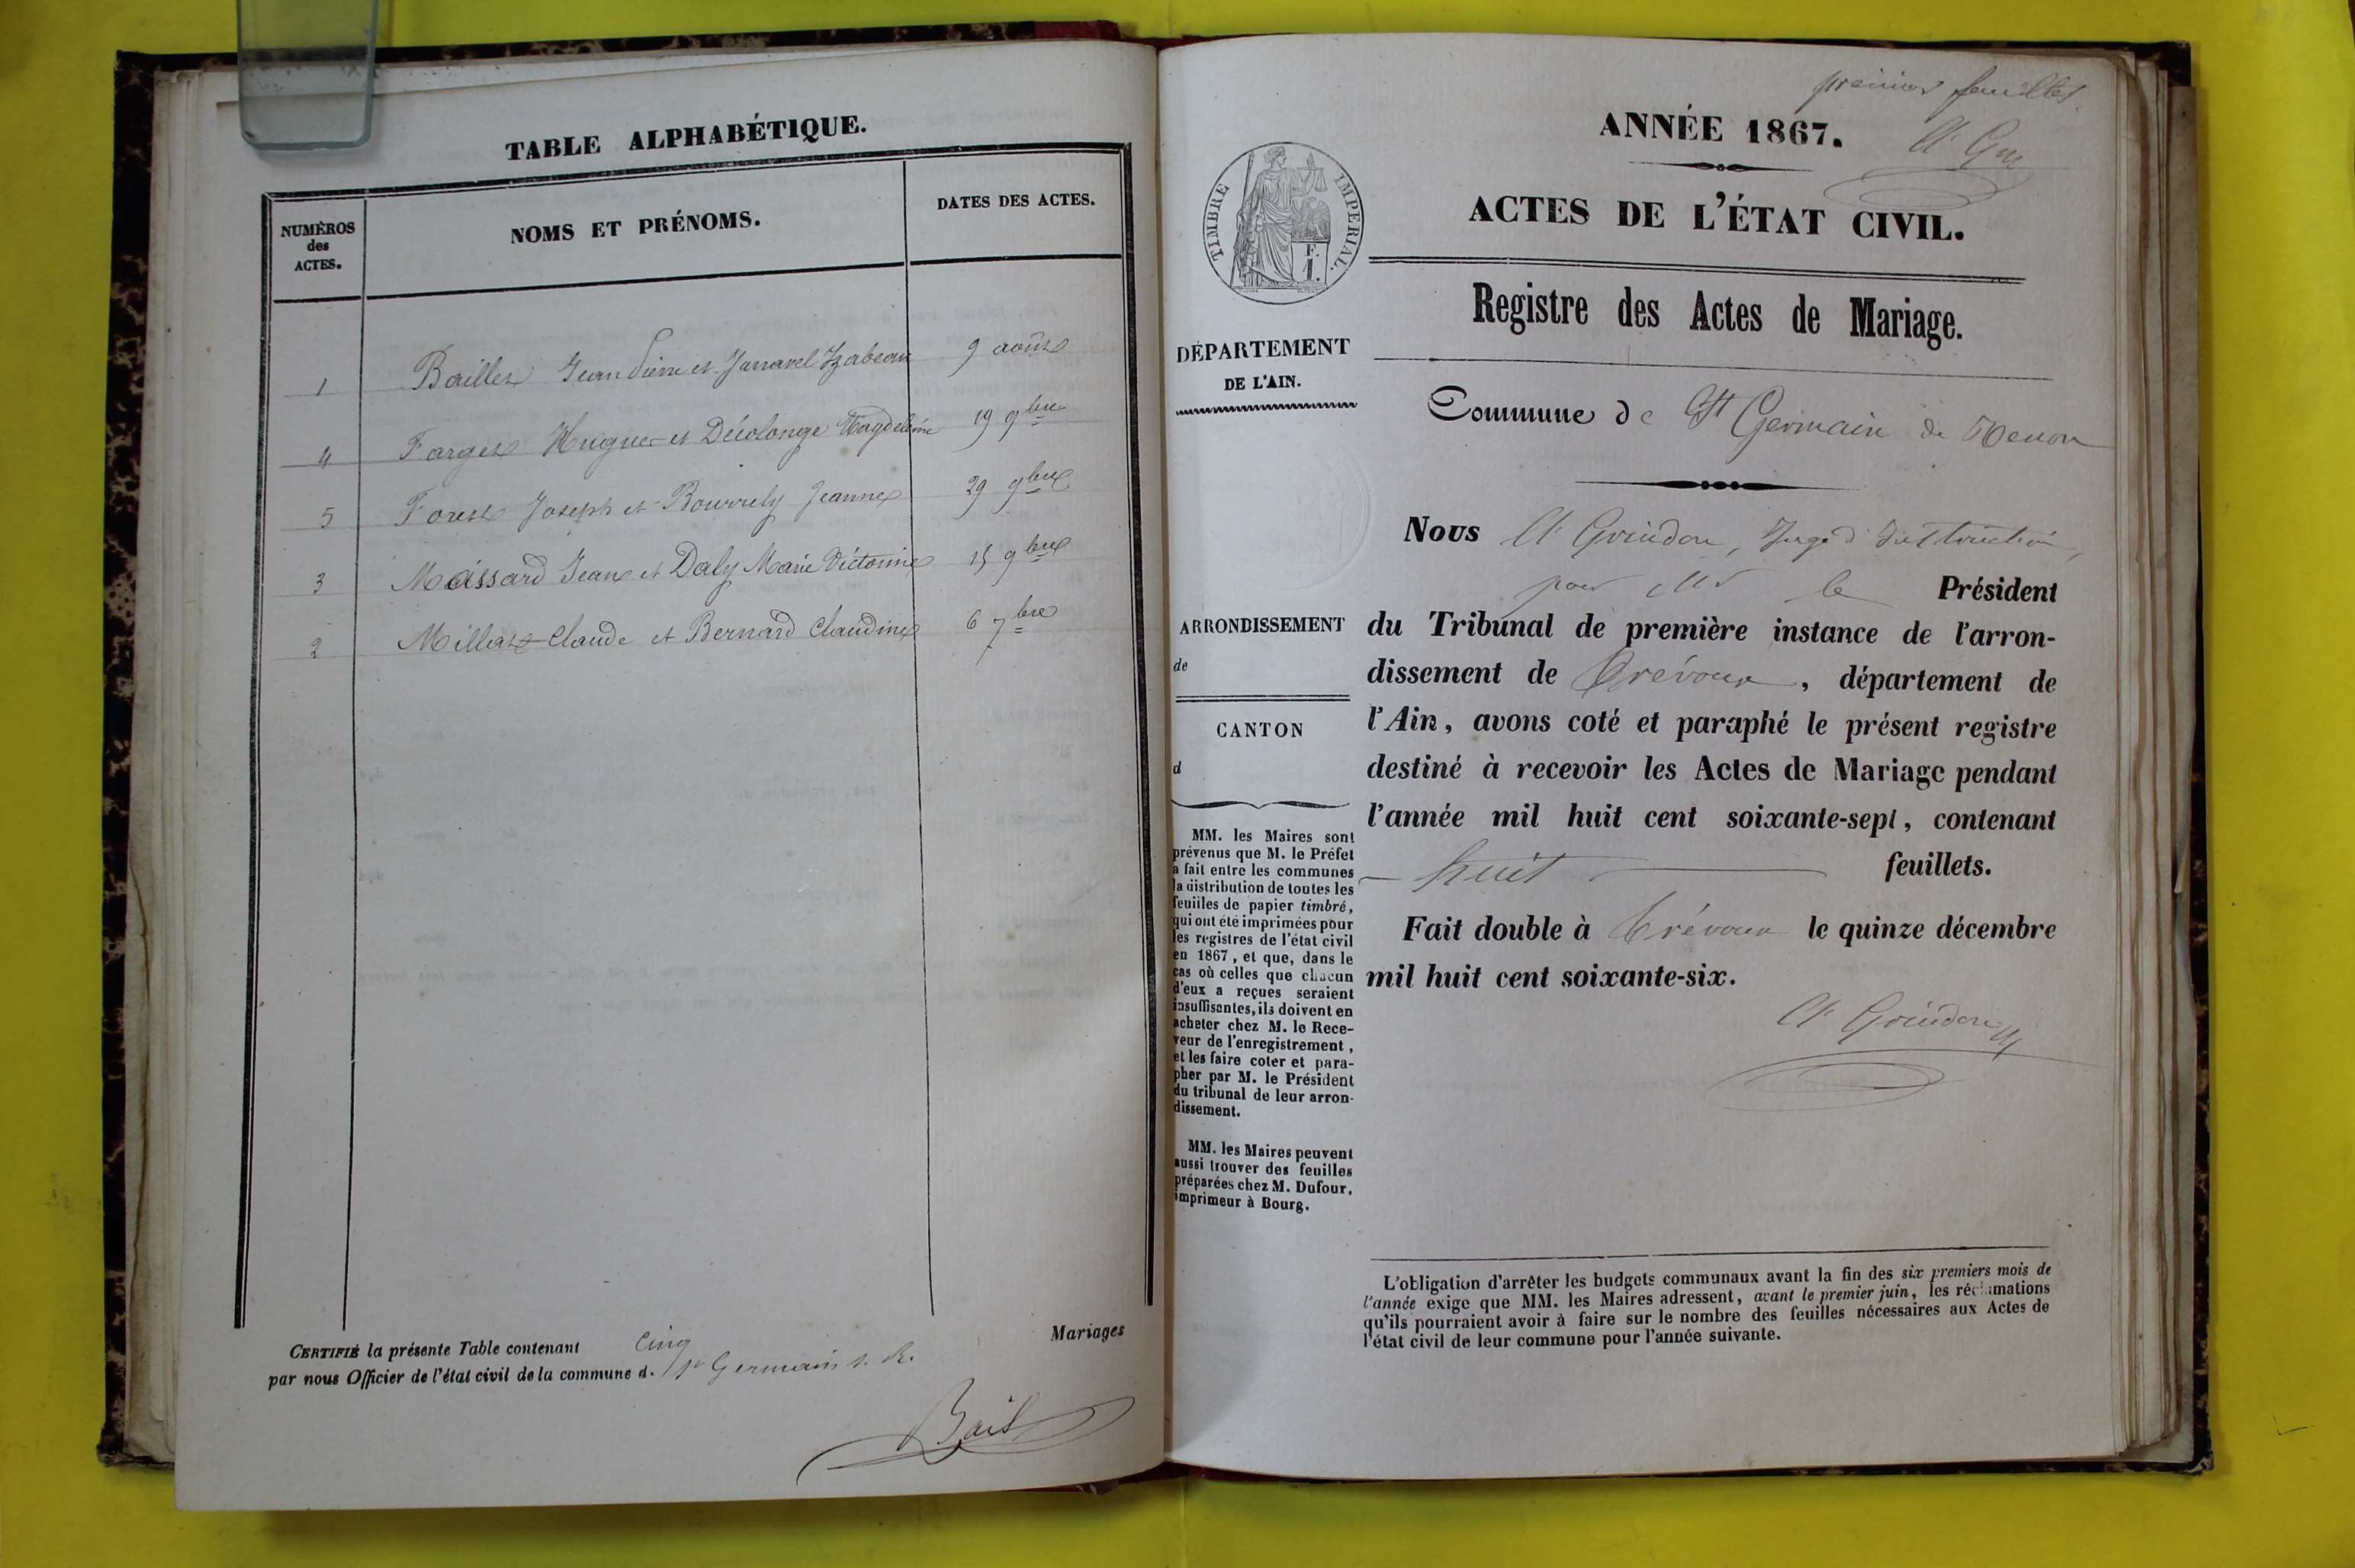 TABLE ALPHABÉTIQUE.
NUMÉROS
des
ACTES.
NOMS ET PRÉNOMS.
DATES DES ACTES.
1 Baillet Jean Pierre et Izabeau 9 août
4 Farget Hugues et Décolonge Magdeleine 19 9bre
5 Forest Joseph et Bourrely Jeanne 29 9bre
3 Massard Jean et Daly Marie Victorine 15 9bre
2 Millat Claude et Bernard Claudine 6 7bre
CERTIFIÉ la présente Table contenant Cinq Mariages
par nous Officier de l'état civil de la commune d. St Germain s. R.
Bail
premier feuillet.
ANNÉE 1867.
ACTES DE L'ÉTAT CIVIL.
TIMBRE IMPERIAL.
F.
1.
Registre des Actes de Mariage.
DÉPARTEMENT
DE L'AIN.
Commune de St Germain de Renon
Nous A. Grindon, Juge d'Instruction,
pour Mr le Président
du Tribunal de première instance de l'arron-
dissement de Trévoux, département de
l'Ain, avons coté et paraphé le présent registre
destiné à recevoir les Actes de Mariage pendant
l'année mil huit cent soixante-sept, contenant
huit feuillets.
Fait double à Trévoux le quinze décembre
mil huit cent soixante-six.
A. Grindon
ARRONDISSEMENT
de
CANTON
d
MM. les Maires sont
prévenus que M. le Préfet
a fait entre les communes
la distribution de toutes les
feuilles de papier timbré,
qui ont été imprimées pour
les registres de l'état civil
en 1867, et que, dans le
cas où celles que chacun
d'eux a reçues seraient
insuffisantes, ils doivent en
acheter chez M. le Rece-
veur de l'enregistrement,
et les faire coter et para-
pher par M. le Président
du tribunal de leur arron-
dissement.
MM. les Maires peuvent
aussi trouver des feuilles
préparées chez M. Dufour,
imprimeur à Bourg.
L'obligation d'arrêter les budgets communaux avant la fin des six premiers mois de
l'année exige que MM. les Maires adressent, avant le premier juin, les réclamations
qu'ils pourraient avoir à faire sur le nombre des feuilles nécessaires aux Actes de
l'état civil de leur commune pour l'année suivante.